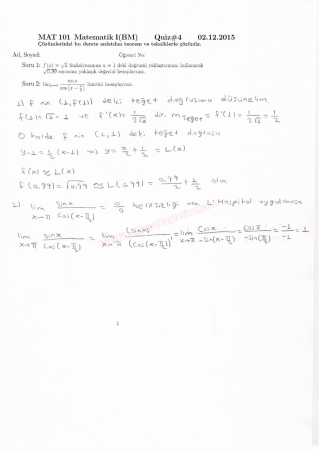 MAT 101 Matematik I(BM) Quiz#4 02.12.2015
Çözümlerinizi bu derste anlatılan teorem ve tekniklerle çözünüz.
Ad, Soyad: Öğrenci No:
Soru 1: f(x) = √x fonksiyonunun a = 1 deki doğrusal yaklaştırımını kullanarak
√0,99 sayısının yaklaşık değerini hesaplayınız.
Soru 2: lim x→π sin x / cos(x − π/2) limitini hesaplayınız.
1) f nin (1, f(1)) deki teğet doğrusunu düşünelim.
f(1) = √1 = 1 ve f'(x) = 1/(2√x) dir. m Teğet = f'(1) = 1/(2√1) = 1/2
O halde f nin (1,1) deki teğet doğrusu
y-1 = 1/2 (x-1) ⇒ y = x/2 + 1/2 = L(x)
f(x) ≈ L(x)
f(0,99) = √0,99 ≈ L(0,99) = 0,99/2 + 1/2 olur
2) lim x→π sinx / cos(x-π/2) = 0/0 belirsizliği var. L'Hospital uygulanırsa
lim x→π sinx / cos(x-π/2) = lim x→π (sinx)' / (cos(x-π/2))' = lim x→π cosx / -sin(x-π/2) = cosπ / -sin(π/2) = -1/-1 = 1
1